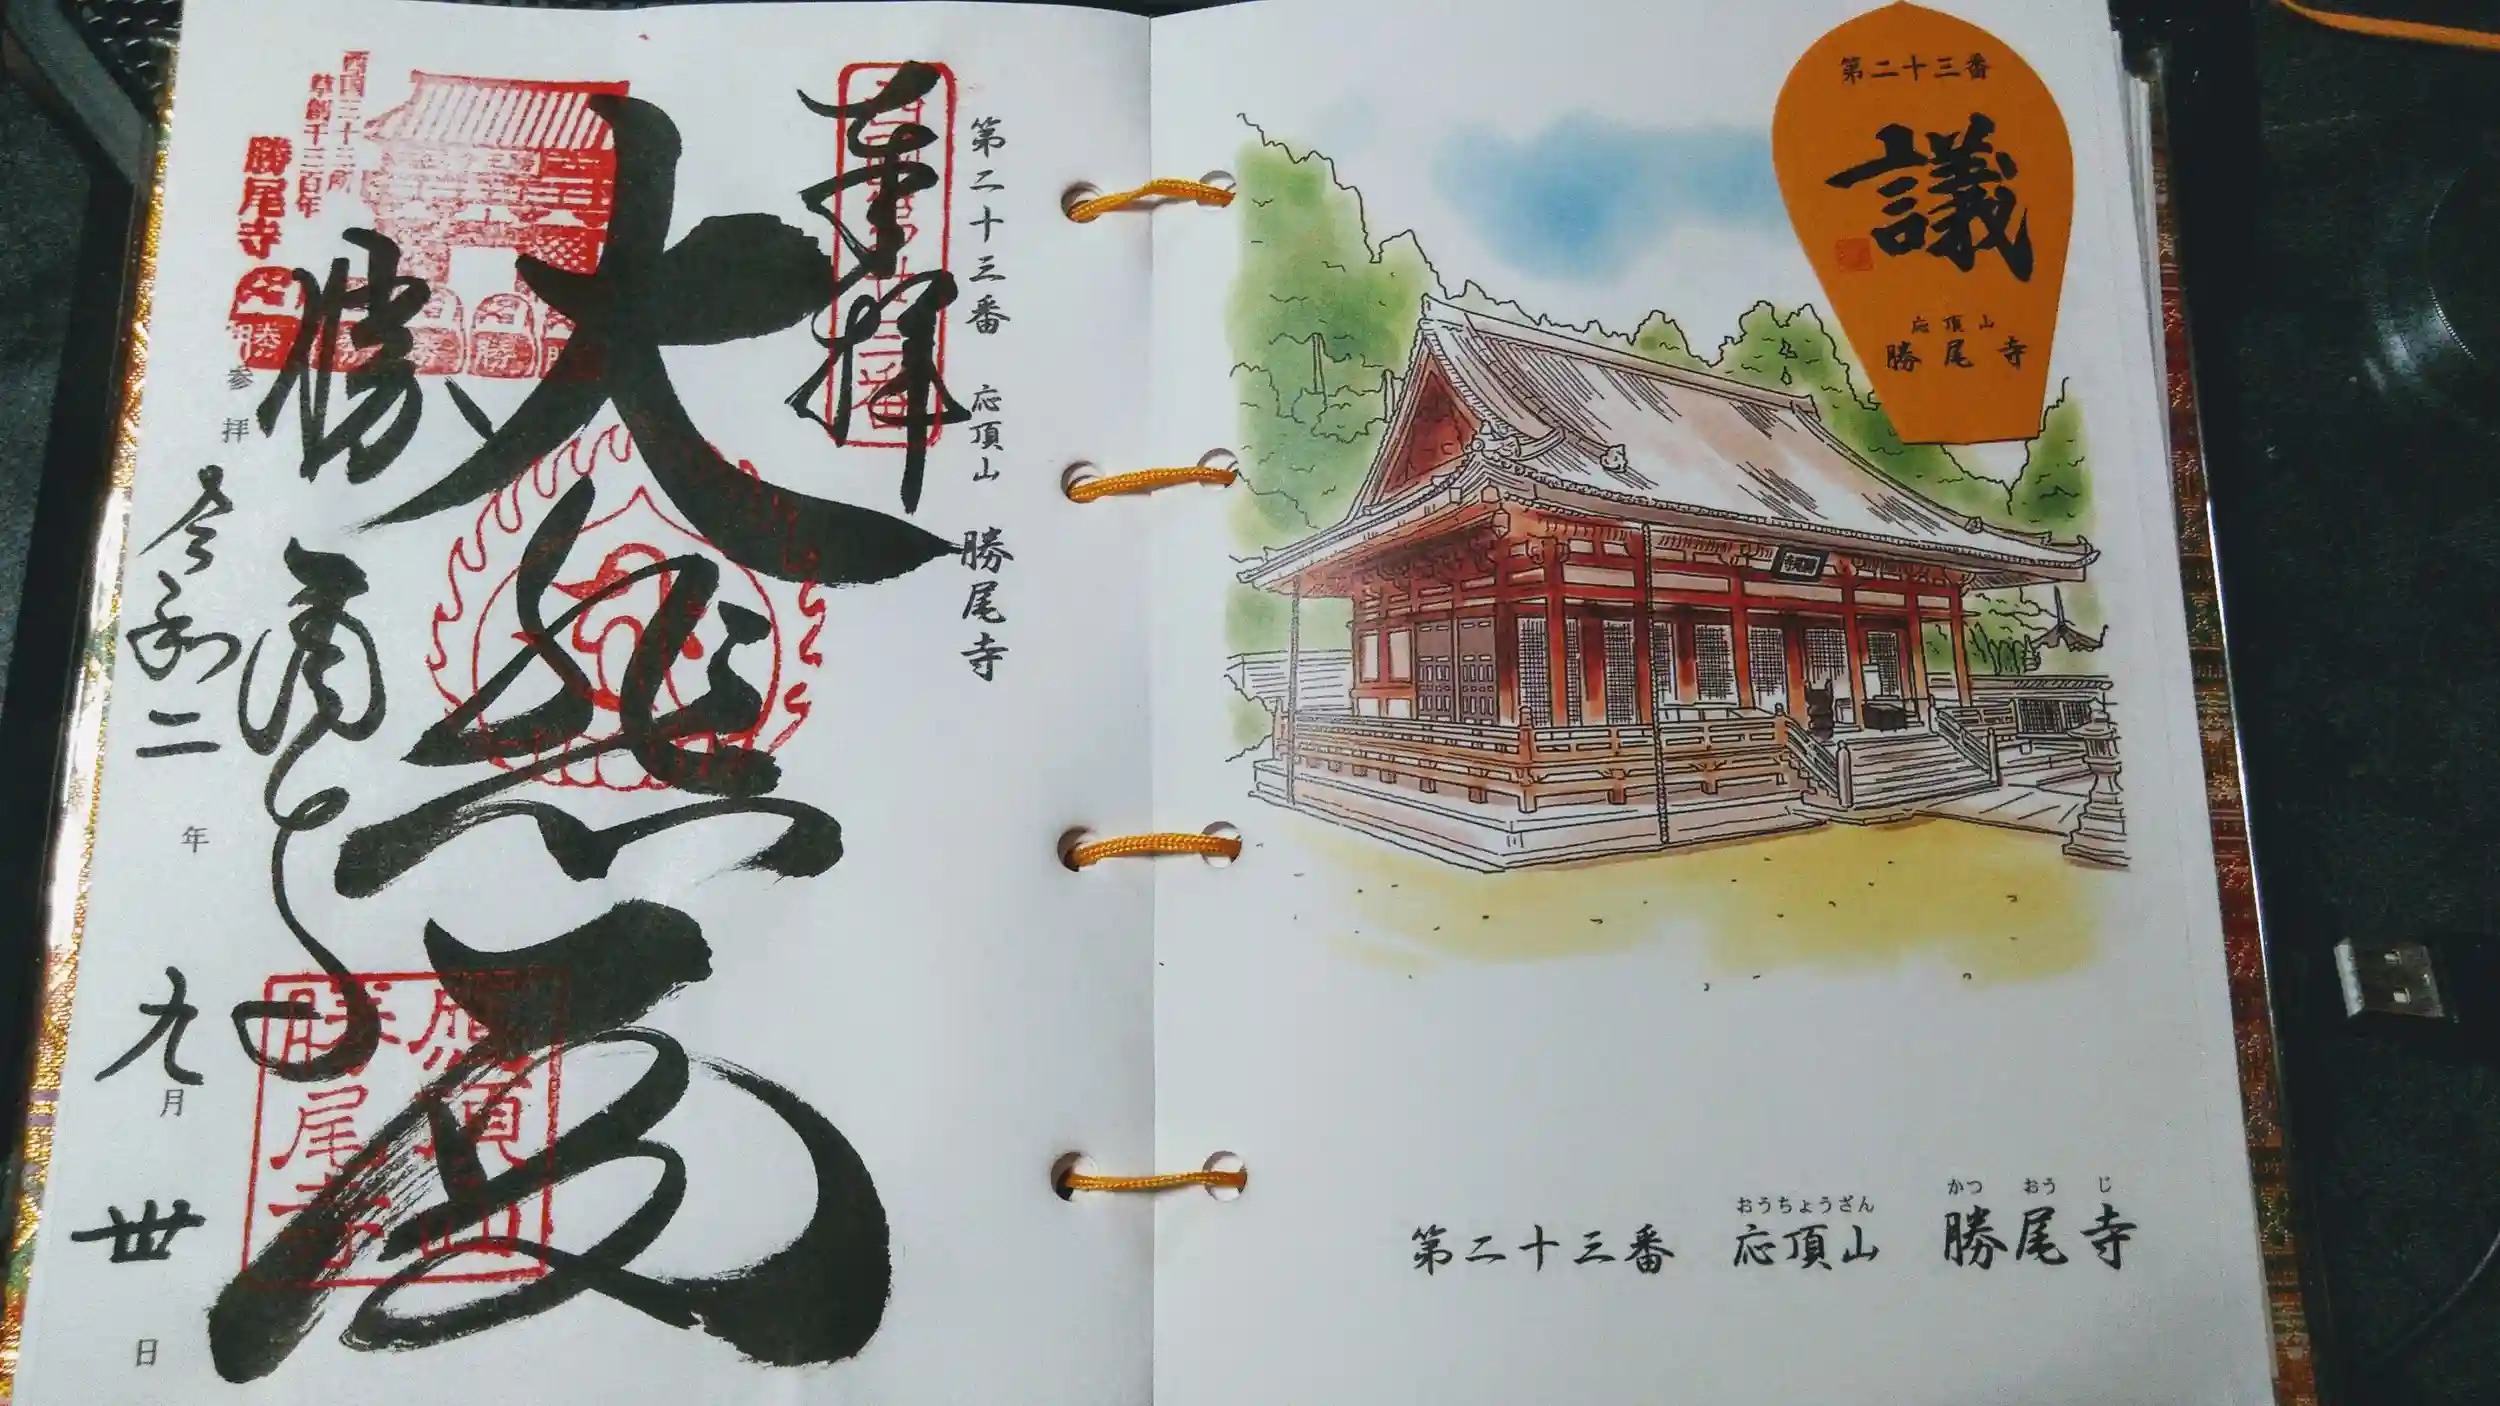 第二十三番 応頂山 勝尾寺
奉拝
西国第廿三番
大悲殿
勝尾寺
西国三十三所
草創千三百年
勝尾寺
勝
応頂山
勝尾寺
参拝 令和二年九月卅日
第二十三番
議
応頂山
勝尾寺
勝尾寺
おうちょうざん かつ おう じ
第二十三番 応頂山 勝尾寺